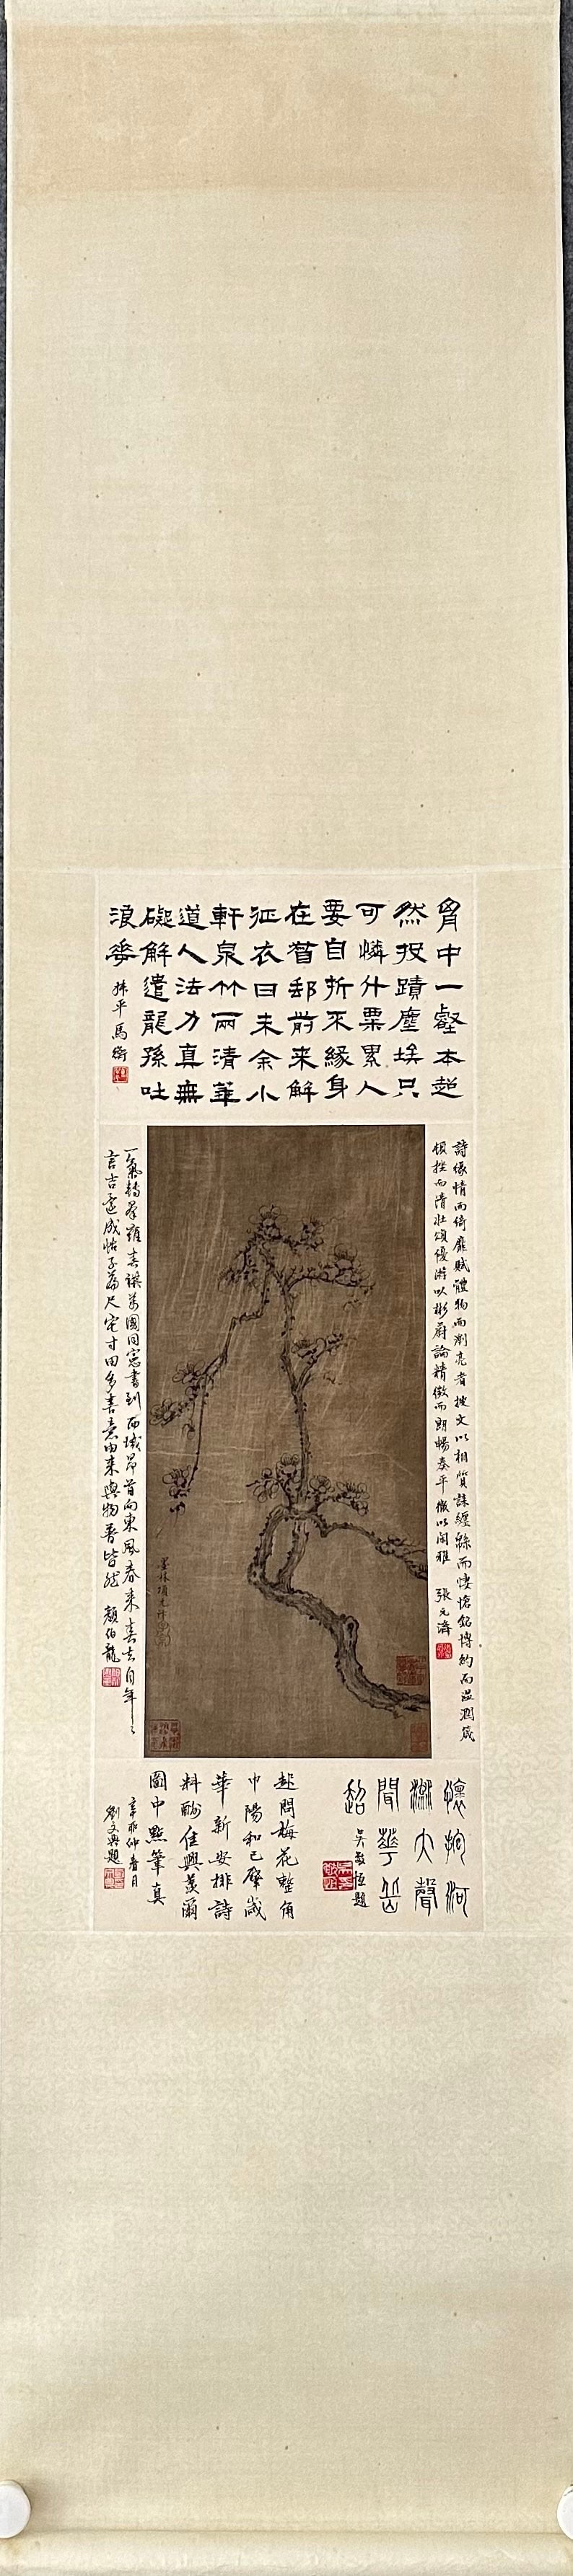 胷中一壑本超
然投蹟塵埃只
可憐斗粟累人
要自折不緣身
在督郵前來解
征衣日未余小
軒泉竹兩清華
道人法力真無
礙解遣龍孫吐
浪華
叔平馬衡
詩緣情而綺靡賦體物而瀏亮碑披文以相質誄纏綿而悽愴銘博約而溫潤箴
頓挫而清壯頌優游以彬蔚論精微而朗暢奏平徹以閑雅 張元濟
墨林項元汴
一氣轉羣 春 萬國同 書到西域昂首向東風春來春去自年年
言吉 成帖子 尺宅寸田多喜意由來與物普皆然 顏伯龍
懷抱河
淵大聲
聞華岳
超
吳敬恆題
起問梅花整角
巾陽和已屬歲
華新安排詩
料酬佳興羨爾
圖中點筆真
辛卯仲春月
劉文興題